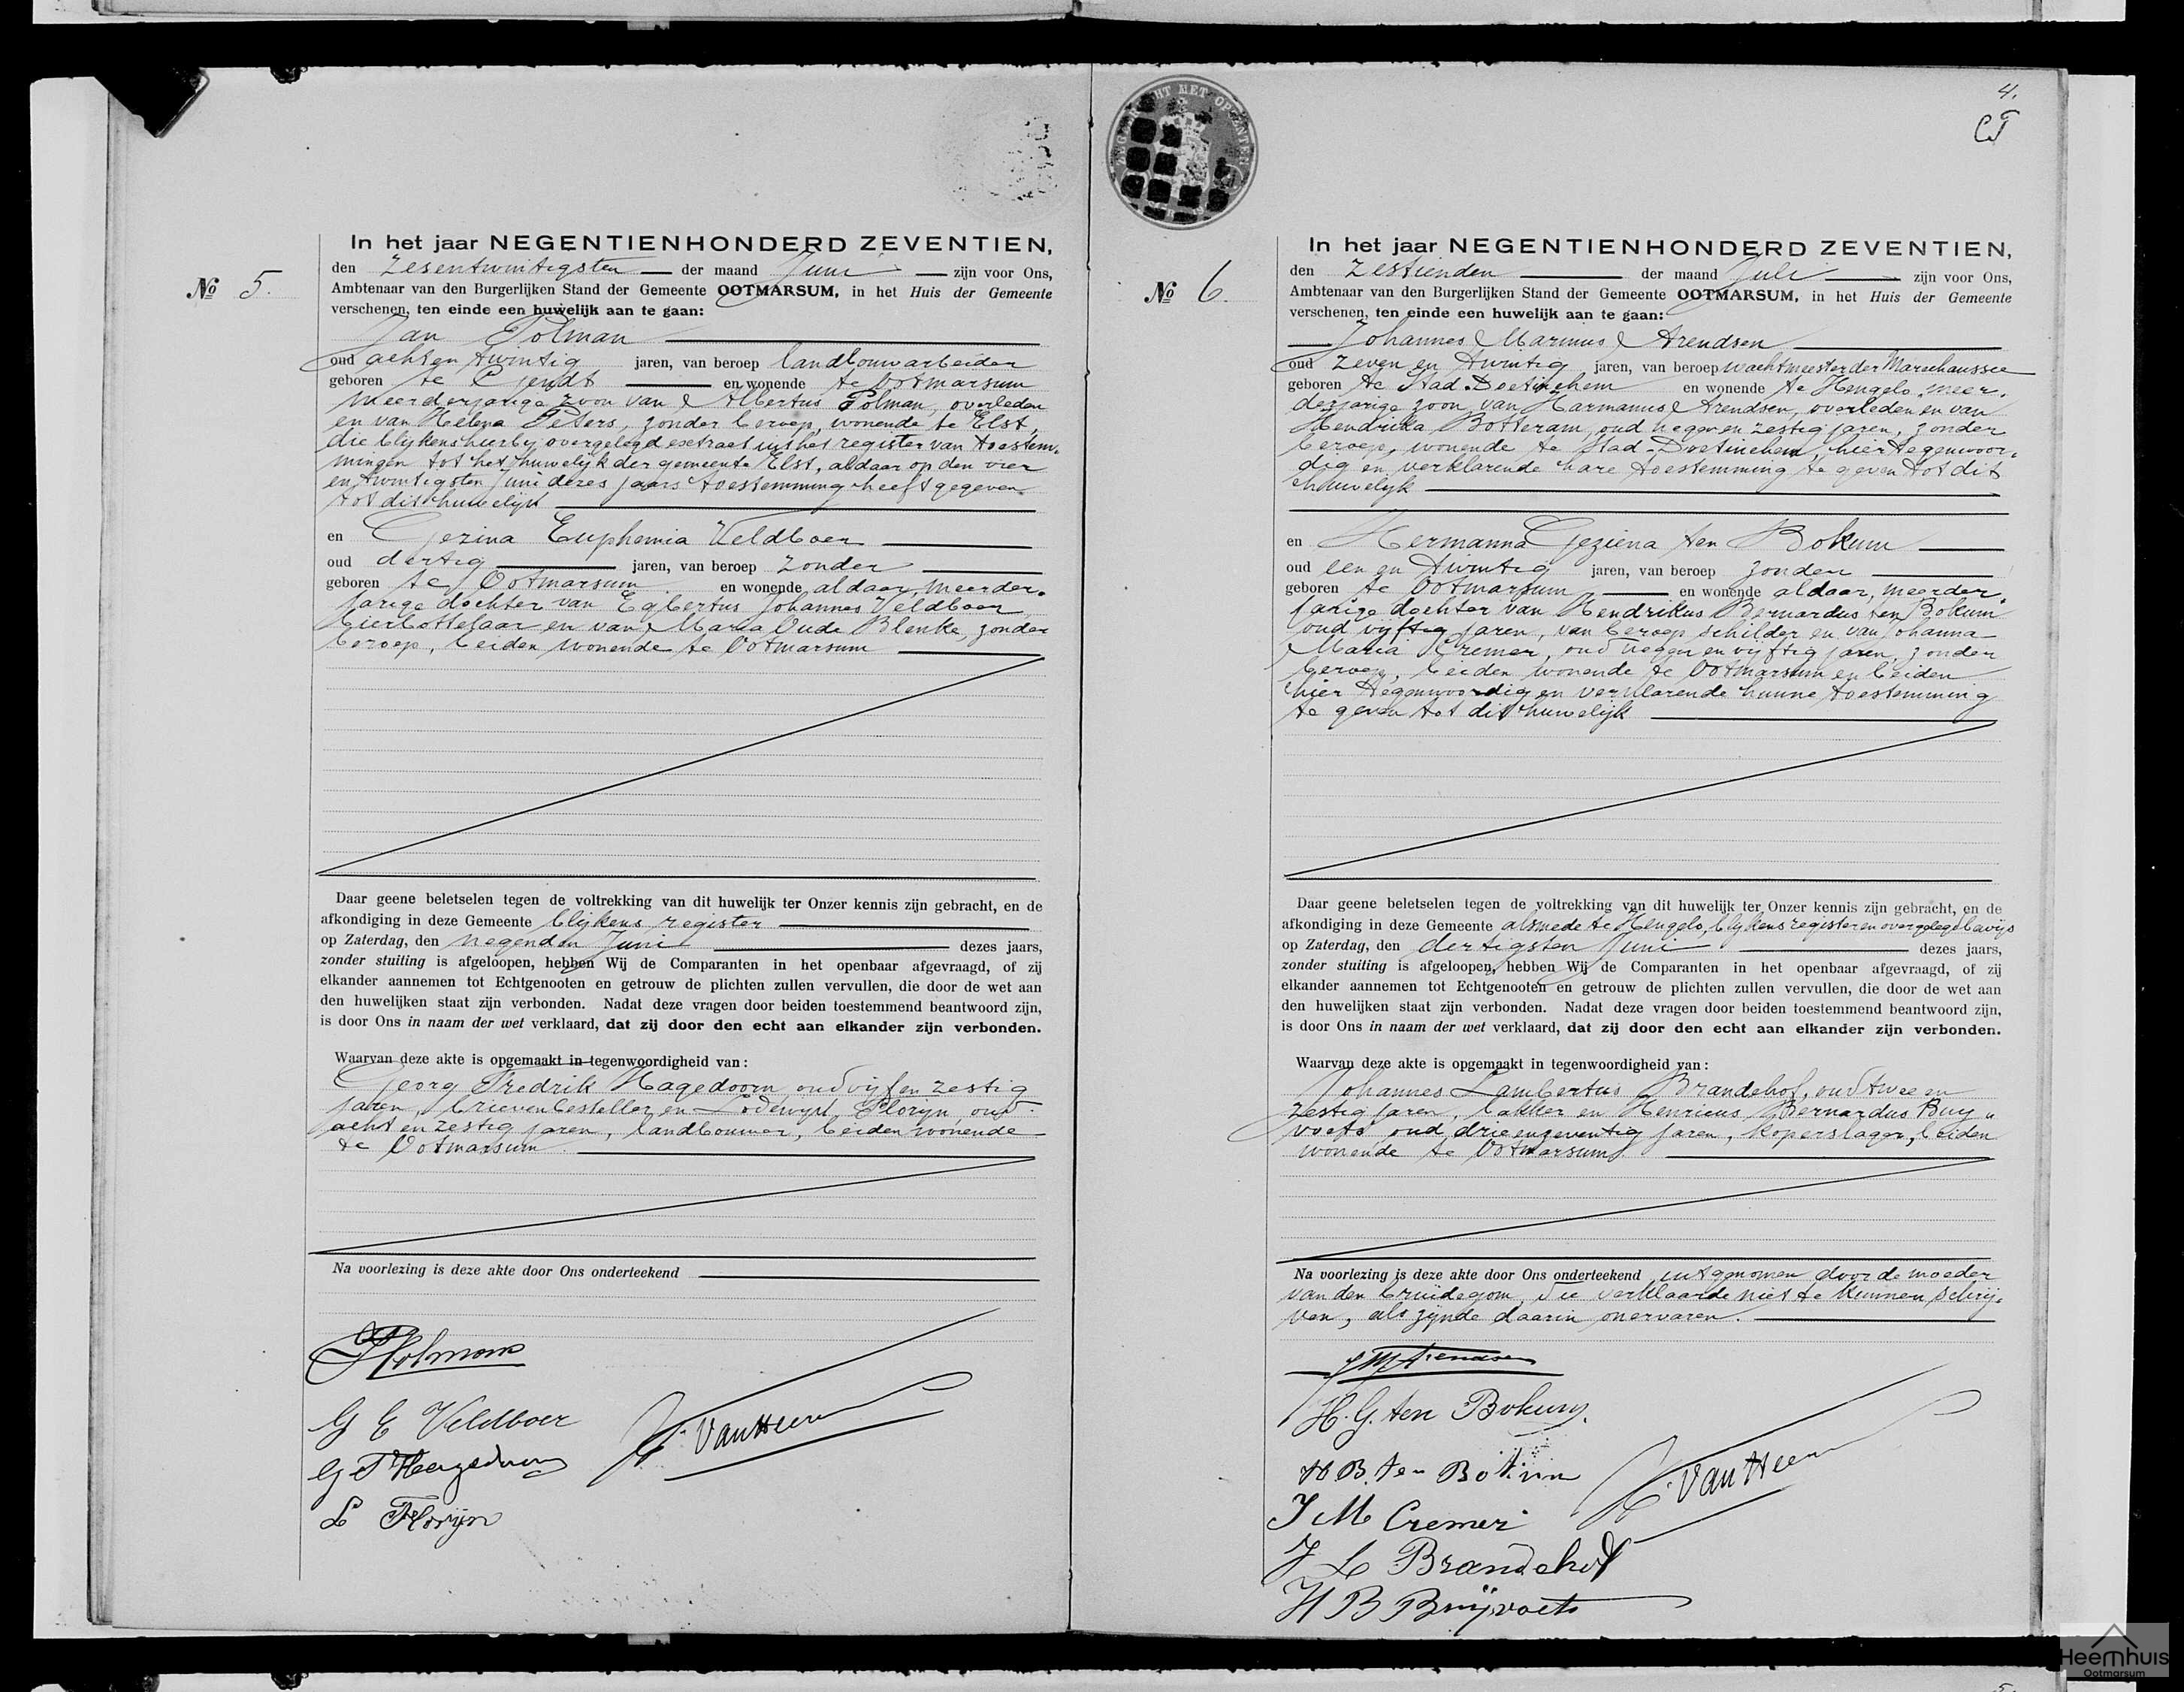 No 5.
In het jaar NEGENTIENHONDERD ZEVENTIEN,
den zesentwintigsten der maand Juni zijn voor Ons,
Ambtenaar van den Burgerlijken Stand der Gemeente OOTMARSUM, in het Huis der Gemeente
verschenen, ten einde een huwelijk aan te gaan:
Jan Polman
oud achtentwintig jaren, van beroep landbouwarbeider
geboren te Gendt en wonende te Ootmarsum
meerderjarige zoon van Albertus Polman, overleden
en van Helena Peters, zonder beroep, wonende te Elst,
die blijkens hierbij overgelegd extract uit het register van toestem-
mingen tot het huwelijk der gemeente Elst, aldaar op den vier
en twintigsten juni dezes jaars toestemming heeft gegeven
tot dit huwelijk
en Gezina Euphemia Veldboer
oud dertig jaren, van beroep zonder
geboren te Ootmarsum en wonende aldaar, meerder-
jarige dochter van Egbertus Johannes Veldboer
bierbottelaar en van Maria Oude Blenke, zonder
beroep, beiden wonende te Ootmarsum
Daar geene beletselen tegen de voltrekking van dit huwelijk ter Onzer kennis zijn gebracht, en de
afkondiging in deze Gemeente blijkens register
op Zaterdag, den negenden Juni dezes jaars,
zonder stuiting is afgeloopen, hebben Wij de Comparanten in het openbaar afgevraagd, of zij
elkander aannemen tot Echtgenooten en getrouw de plichten zullen vervullen, die door de wet aan
den huwelijken staat zijn verbonden. Nadat deze vragen door beiden toestemmend beantwoord zijn,
is door Ons in naam der wet verklaard, dat zij door den echt aan elkander zijn verbonden.
Waarvan deze akte is opgemaakt in tegenwoordigheid van:
Georg Fredrik Hagedoorn, oud vijf en zestig
jaren, brievenbesteller en Lodewijk Florijn, oud
acht en zestig jaren, landbouwer, beiden wonende
te Ootmarsum.
Na voorlezing is deze akte door Ons onderteekend
J Polman
G E Veldboer
G F Hagedoorn
L Florijn
van Heen
4.
No 6.
In het jaar NEGENTIENHONDERD ZEVENTIEN,
den zestienden der maand Juli zijn voor Ons,
Ambtenaar van den Burgerlijken Stand der Gemeente OOTMARSUM, in het Huis der Gemeente
verschenen, ten einde een huwelijk aan te gaan:
Johannes Marinus Arendsen
oud zeven en twintig jaren, van beroep wachtmeester der Marechaussee
geboren te Stad-Doetinchem en wonende te Hengelo, meer-
derjarige zoon van Harmanus Arendsen, overleden en van
Hendrika Botteram, oud negen en zestig jaren, zonder
beroep, wonende te Stad-Doetinchem, hier tegenwoor-
dig en verklarende hare toestemming te geven tot dit
huwelijk
en Hermanna Geziena ten Bokum
oud een en twintig jaren, van beroep zonder
geboren te Ootmarsum en wonende aldaar, meerder-
jarige dochter van Hendrikus Bernardus ten Bokum
oud vijftig jaren, van beroep schilder en van Johanna
Maria Cremer, oud negen en vijftig jaren, zonder
beroep, beiden wonende te Ootmarsum en beiden
hier tegenwoordig en verklarende hunne toestemming
te geven tot dit huwelijk
Daar geene beletselen tegen de voltrekking van dit huwelijk ter Onzer kennis zijn gebracht, en de
afkondiging in deze Gemeente alsmede te Hengelo, blijkens register en overgelegd bewijs
op Zaterdag, den dertigsten Juni dezes jaars,
zonder stuiting is afgeloopen, hebben Wij de Comparanten in het openbaar afgevraagd, of zij
elkander aannemen tot Echtgenooten en getrouw de plichten zullen vervullen, die door de wet aan
den huwelijken staat zijn verbonden. Nadat deze vragen door beiden toestemmend beantwoord zijn,
is door Ons in naam der wet verklaard, dat zij door den echt aan elkander zijn verbonden.
Waarvan deze akte is opgemaakt in tegenwoordigheid van:
Johannes Lambertus Brandehof, oud twee en
zestig jaren, bakker en Henricus Bernardus Buy-
voets oud drie en zeventig jaren, koperslager, beiden
wonende te Ootmarsum
Na voorlezing is deze akte door Ons onderteekend uitgenomen door de moeder
van den bruidegom, die verklaarde niet te kunnen schrij-
ven, als zijnde daarin onervaren.
J M Arendsen
H. G. ten Bokum.
H B. ten Bokum
J M Cremer
J L Brandehof
H B Buijvoets
van Heen
Heemhuis
Ootmarsum